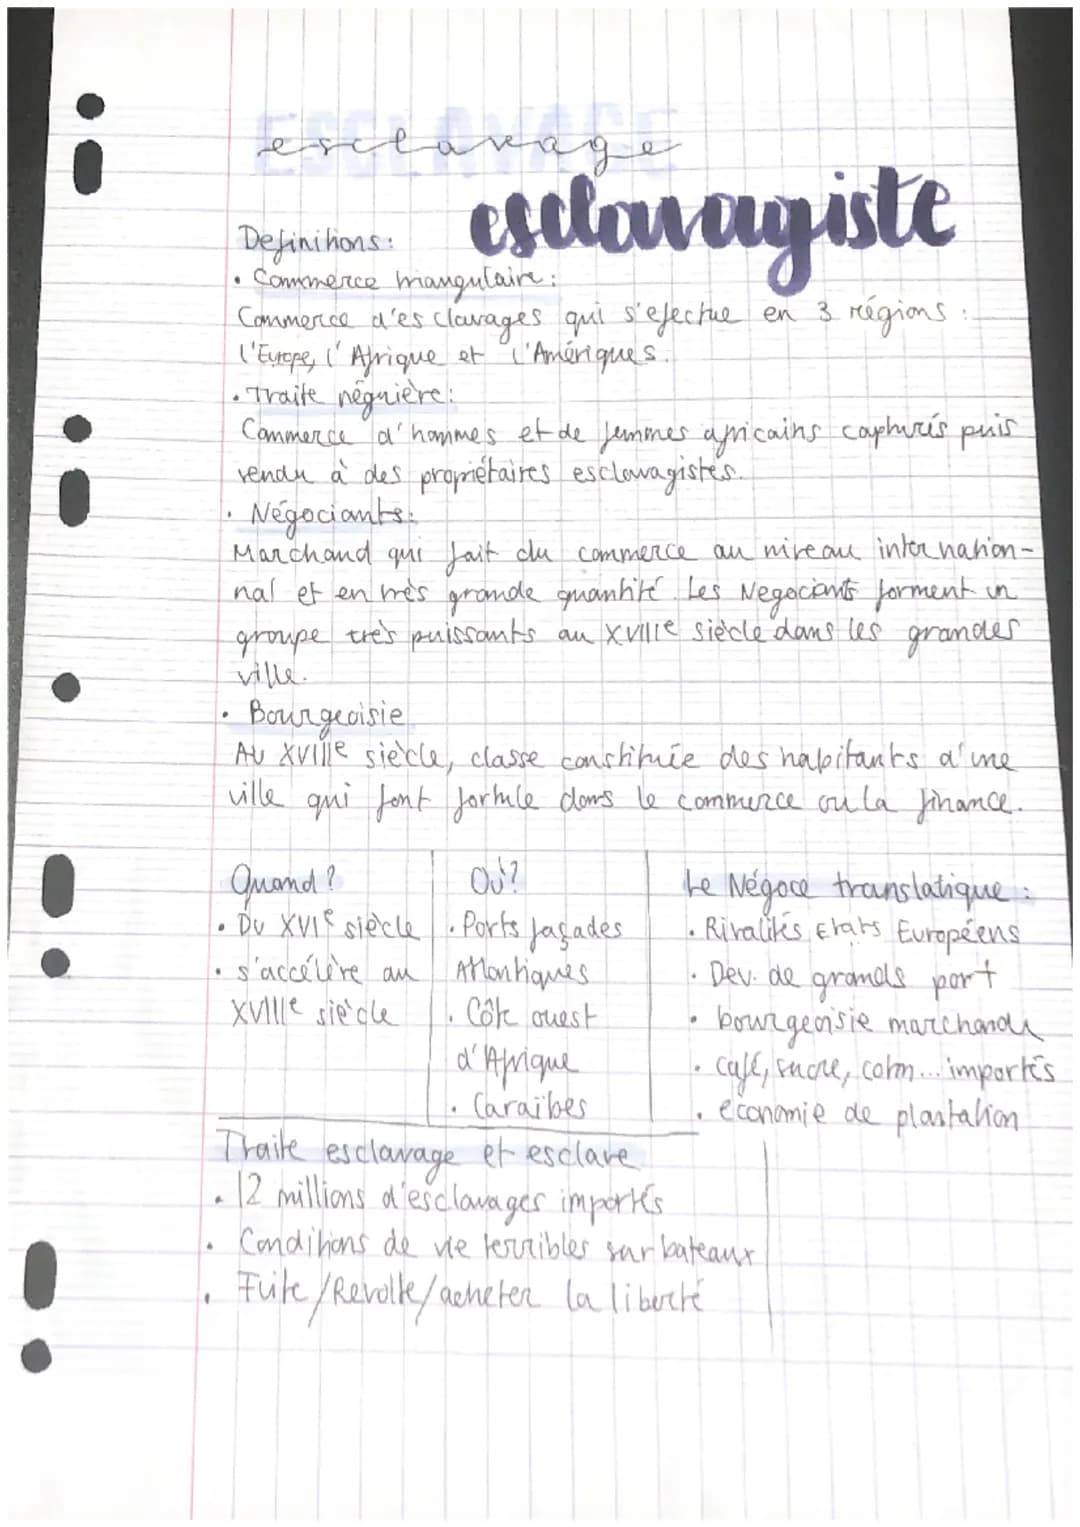 ESCLAVAGE
esclavage
esclavagiste
Definitions:
• Commerce triangulaire:
Commerce d'esclavages qui s'efectue en 3 régions :
l'Europe, l'Afrique et l'Amériques.
• Traite négrière:
Commerce d'hommes et de femmes africains capturés puis
vendu à des propriétaires esclavagistes.
• Négociants:
Marchand qui fait du commerce au niveau internation-
nal et en très grande quantité. Les Negociants forment un
groupe très puissants au XVIIIe siècle dans les grandes
ville.
• Bourgeoisie
Au XVIIIe siècle, classe constituée des habitants d'une
ville qui font fortule dans le commerce ou la finance.
Quand?
• Du XVIe siècle
• s'accélère au
XVIIIe siècle
Où?
• Ports façades
Atlantiques
• Côte ouest
d'Afrique
• Caraïbes
Le Négoce translatique :
• Rivalités Etats Européens
• Dev. de grands port
• bourgeoisie marchande
• café, sucre, coton... importés
• économie de plantation
Traite esclavage et esclave
• 12 millions d'esclavages importés
• Conditions de vie terribles sur bateaux
• Fuite/Revolte/acheter la liberté